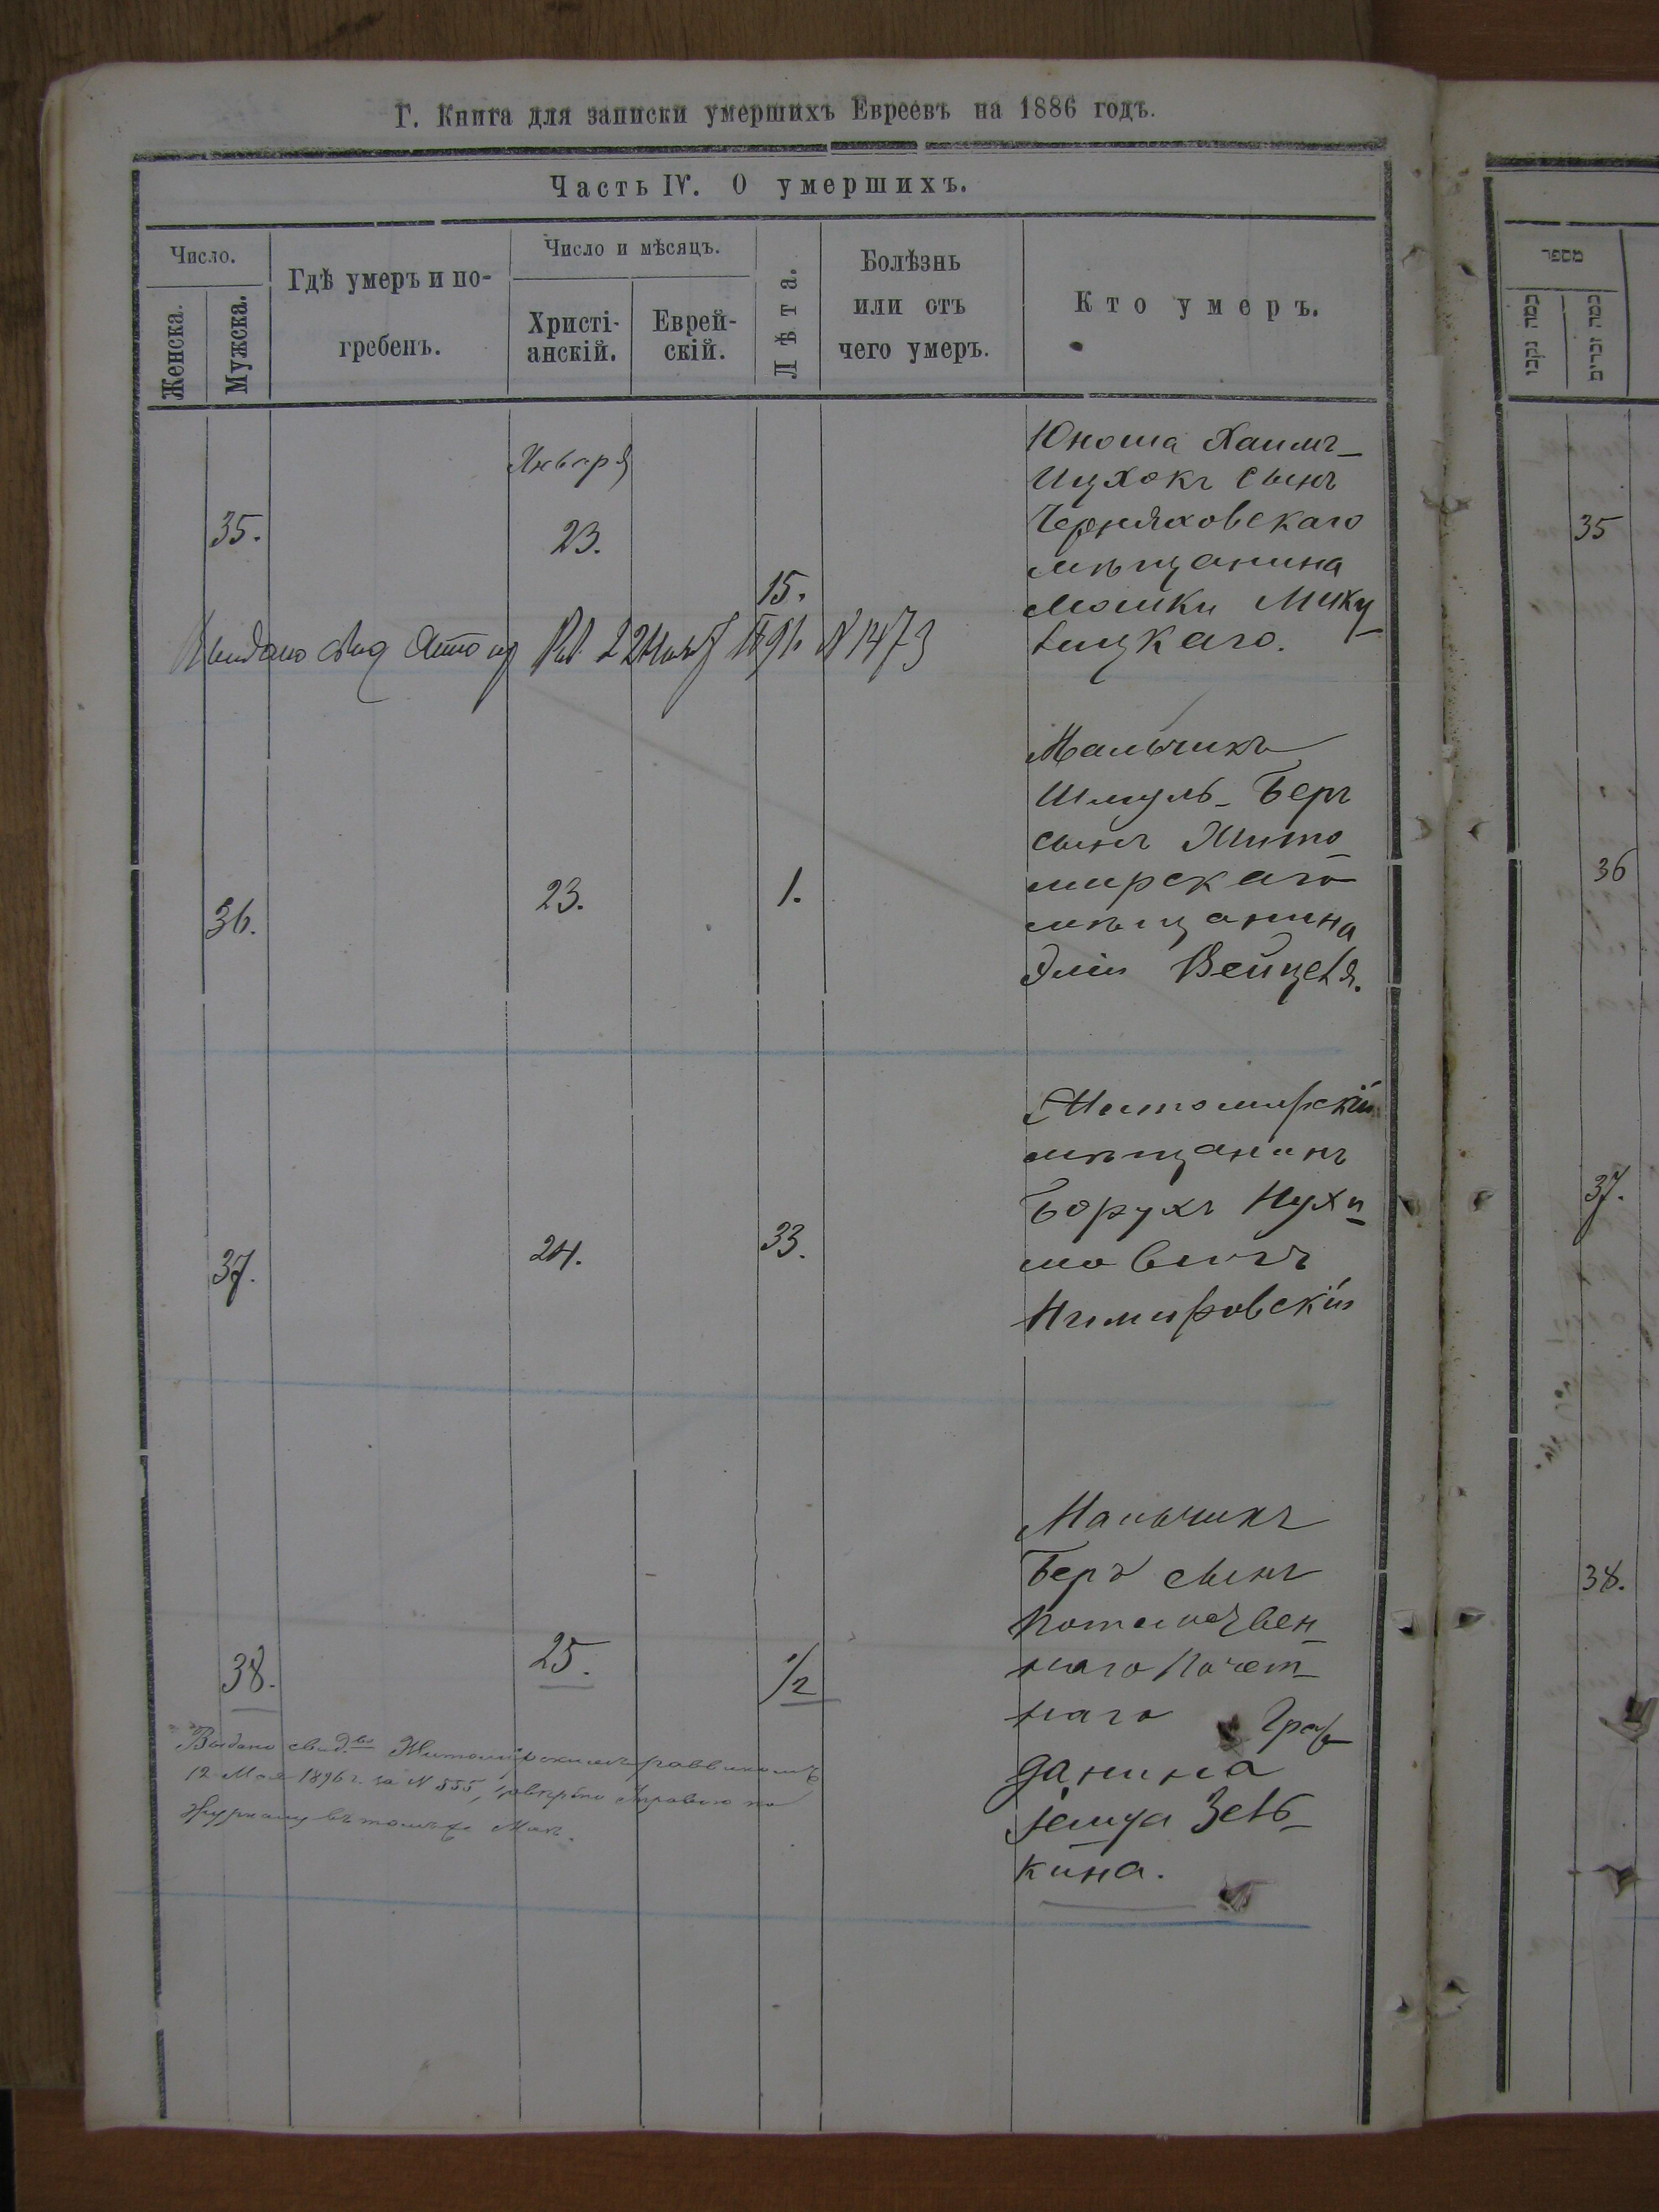 Г. Книга для записки умершихъ Евреевъ на 1886 годъ.
Часть IV. О умершихъ.
Число.
Женска.
Мужска.
Гдѣ умеръ и по-
гребенъ.
Число и мѣсяцъ.
Христі-
анскій.
Еврей-
скій.
Лѣта.
Болѣзнь
или отъ
чего умеръ.
Кто умеръ.
Января
35.
23.
15.
Юноша Хаимъ-
Ицхокъ сынъ
Черняховскаго
мѣщанина
Мошки Мику
лицкаго.
Выдано 22 N 1473
36.
23.
1.
Мальчикъ
Шмуль-Беръ
сынъ Жито
мирскаго
мѣщанина
Эліи Вейцеля.
37.
24.
33.
Житомирскій
мѣщанинъ
Борухъ Нухи
мовичъ
Нимировскій
38.
25.
1/2
Мальчикъ
Беръ сынъ
Потомствен
наго Почет
наго Граж
данина
Зель
кина.
Выдано свид.во Житомірскимъ раввиномъ
12 Мая 1896 г. за N 555,
Журналу въ томъ же
מספר
35
36
37.
38.